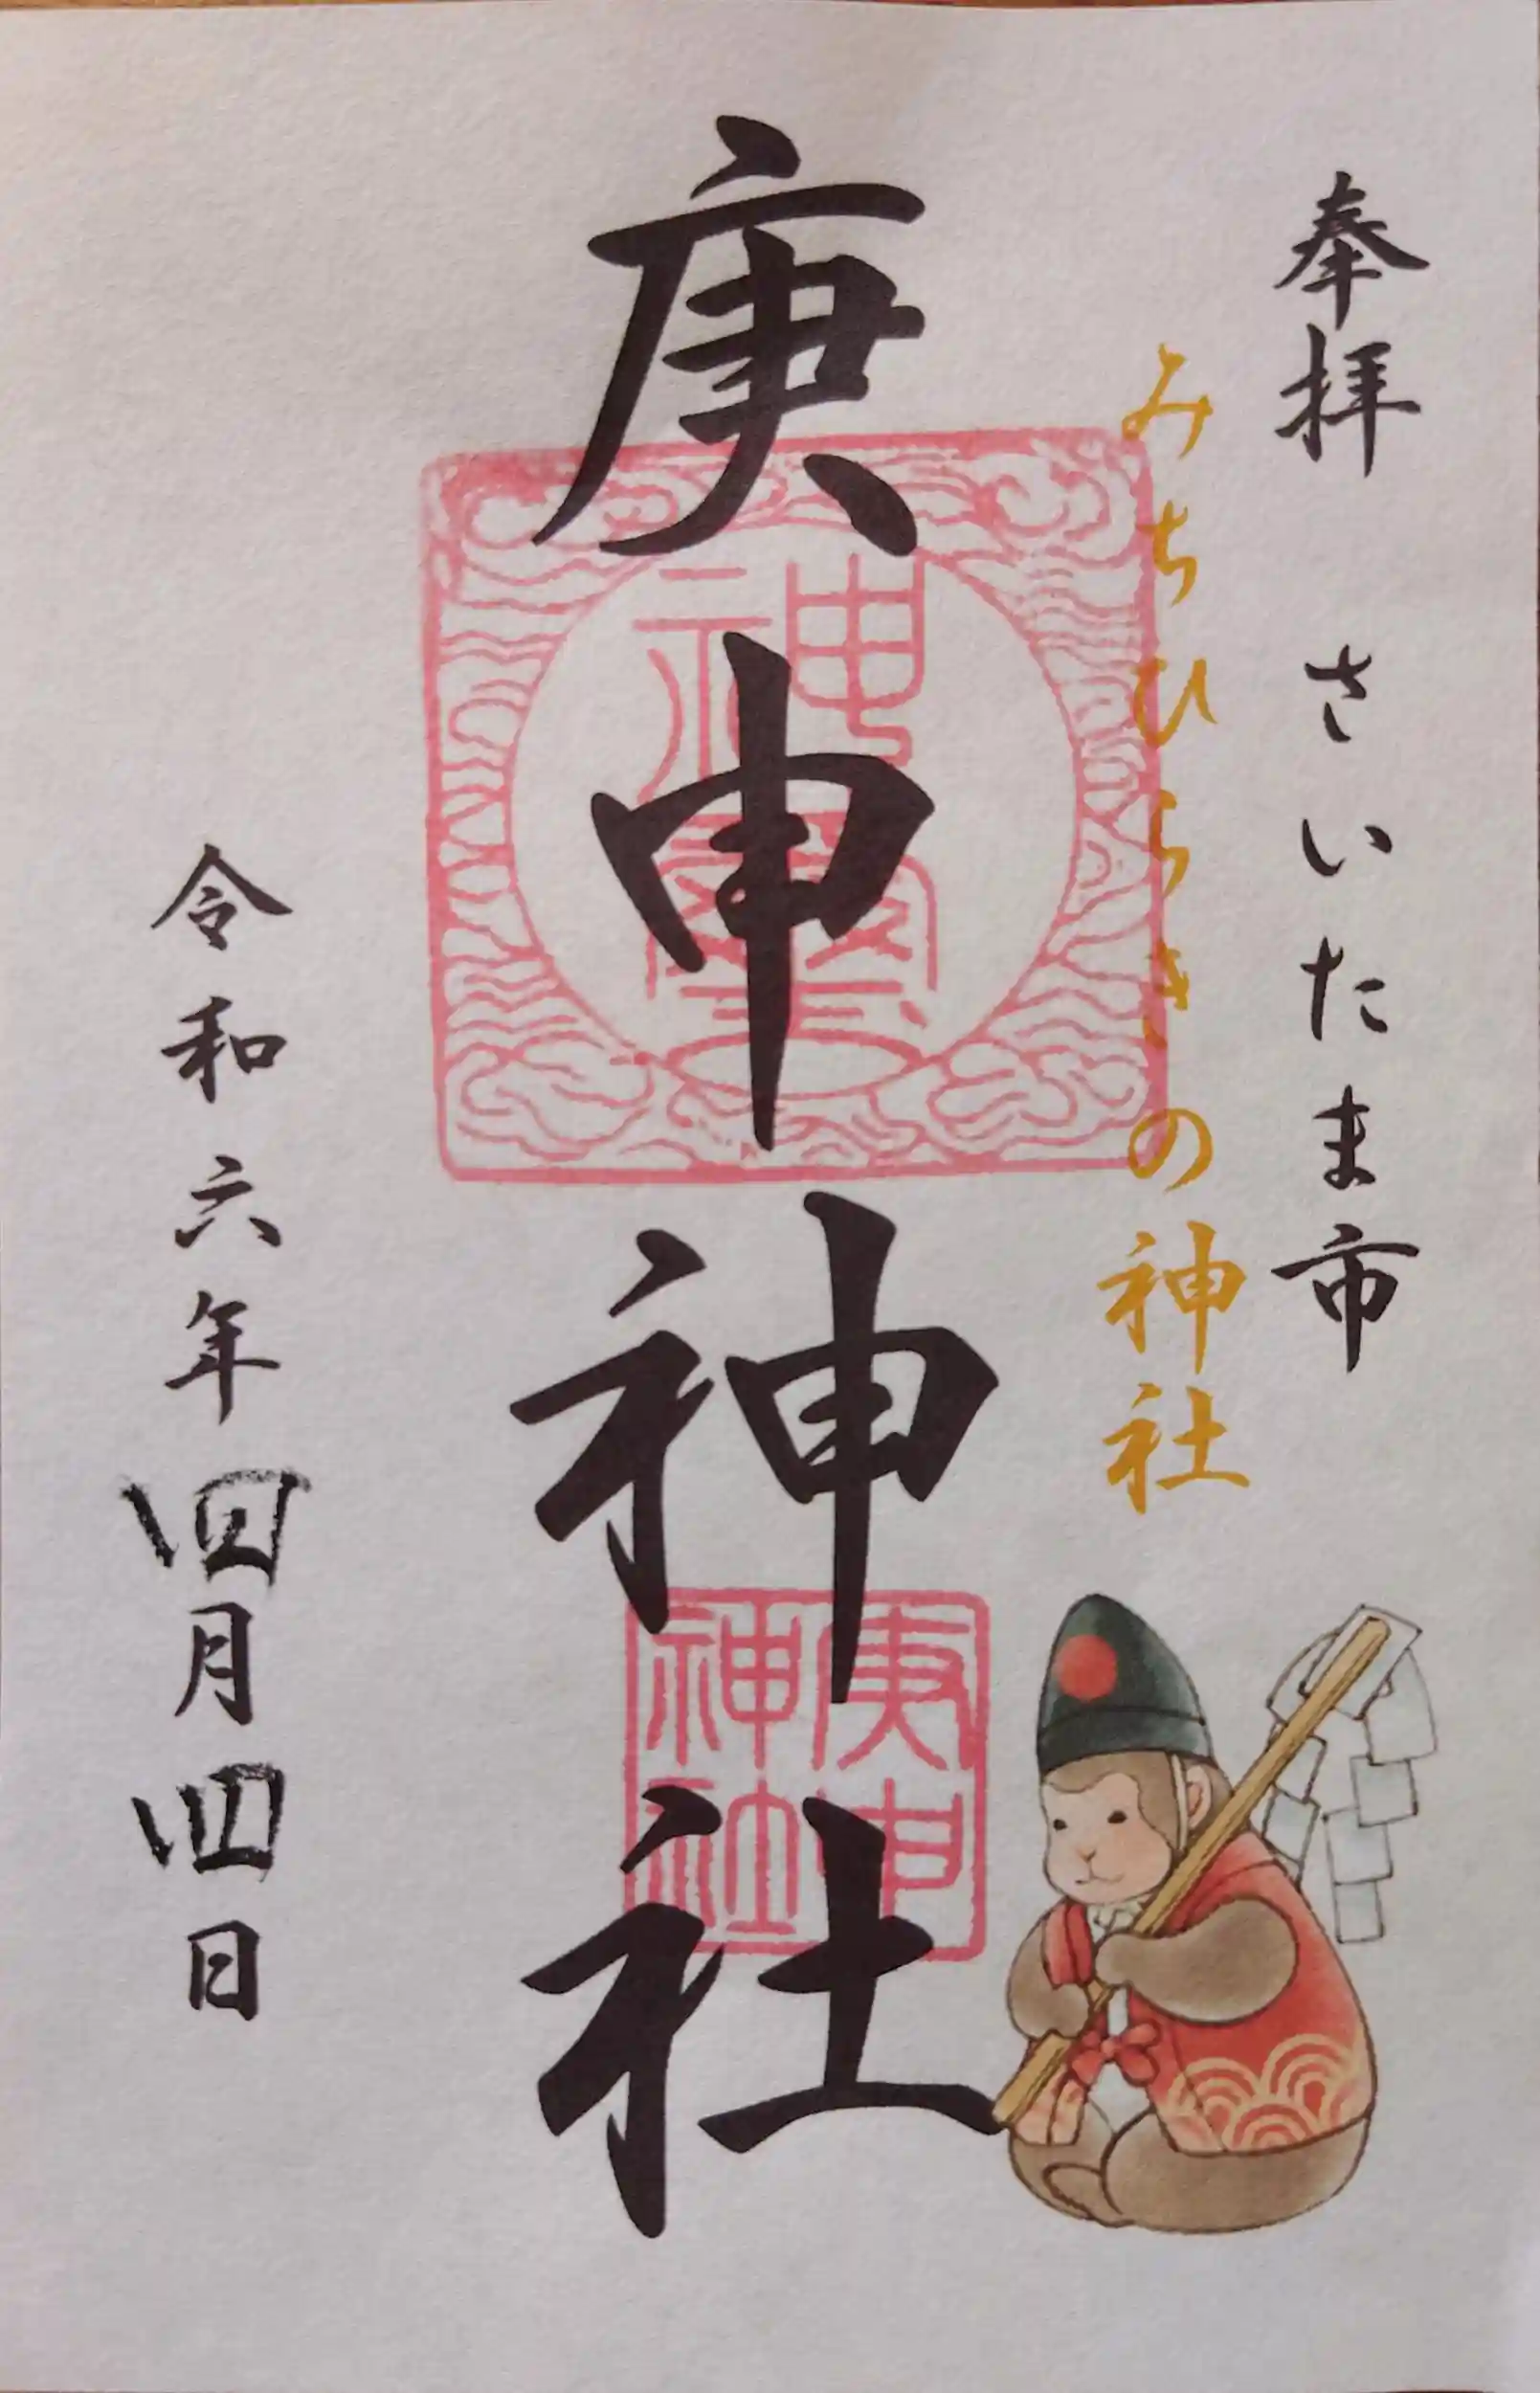 奉拝 さいたま市
みちひらきの神社
庚申神社
神璽
庚申神社
令和六年四月四日